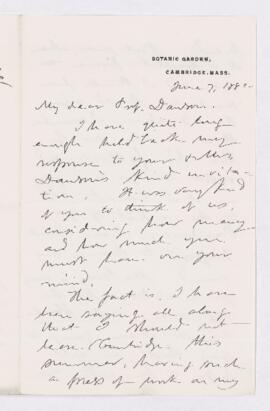 BOTANIC GARDEN,
CAMBRIDGE, MASS.
June 7, 188
My dear Prof. Dawson.
I have quite long
enough held back my
response to your & Mrs
Dawson's kind invita-
tion. It was very kind
of you to think of us,
considering how many
and how much you
must have on your
mind.
The fact is, I have
been saying all along
that I should not
leave Cambridge this
summer, having such
a press of work on my